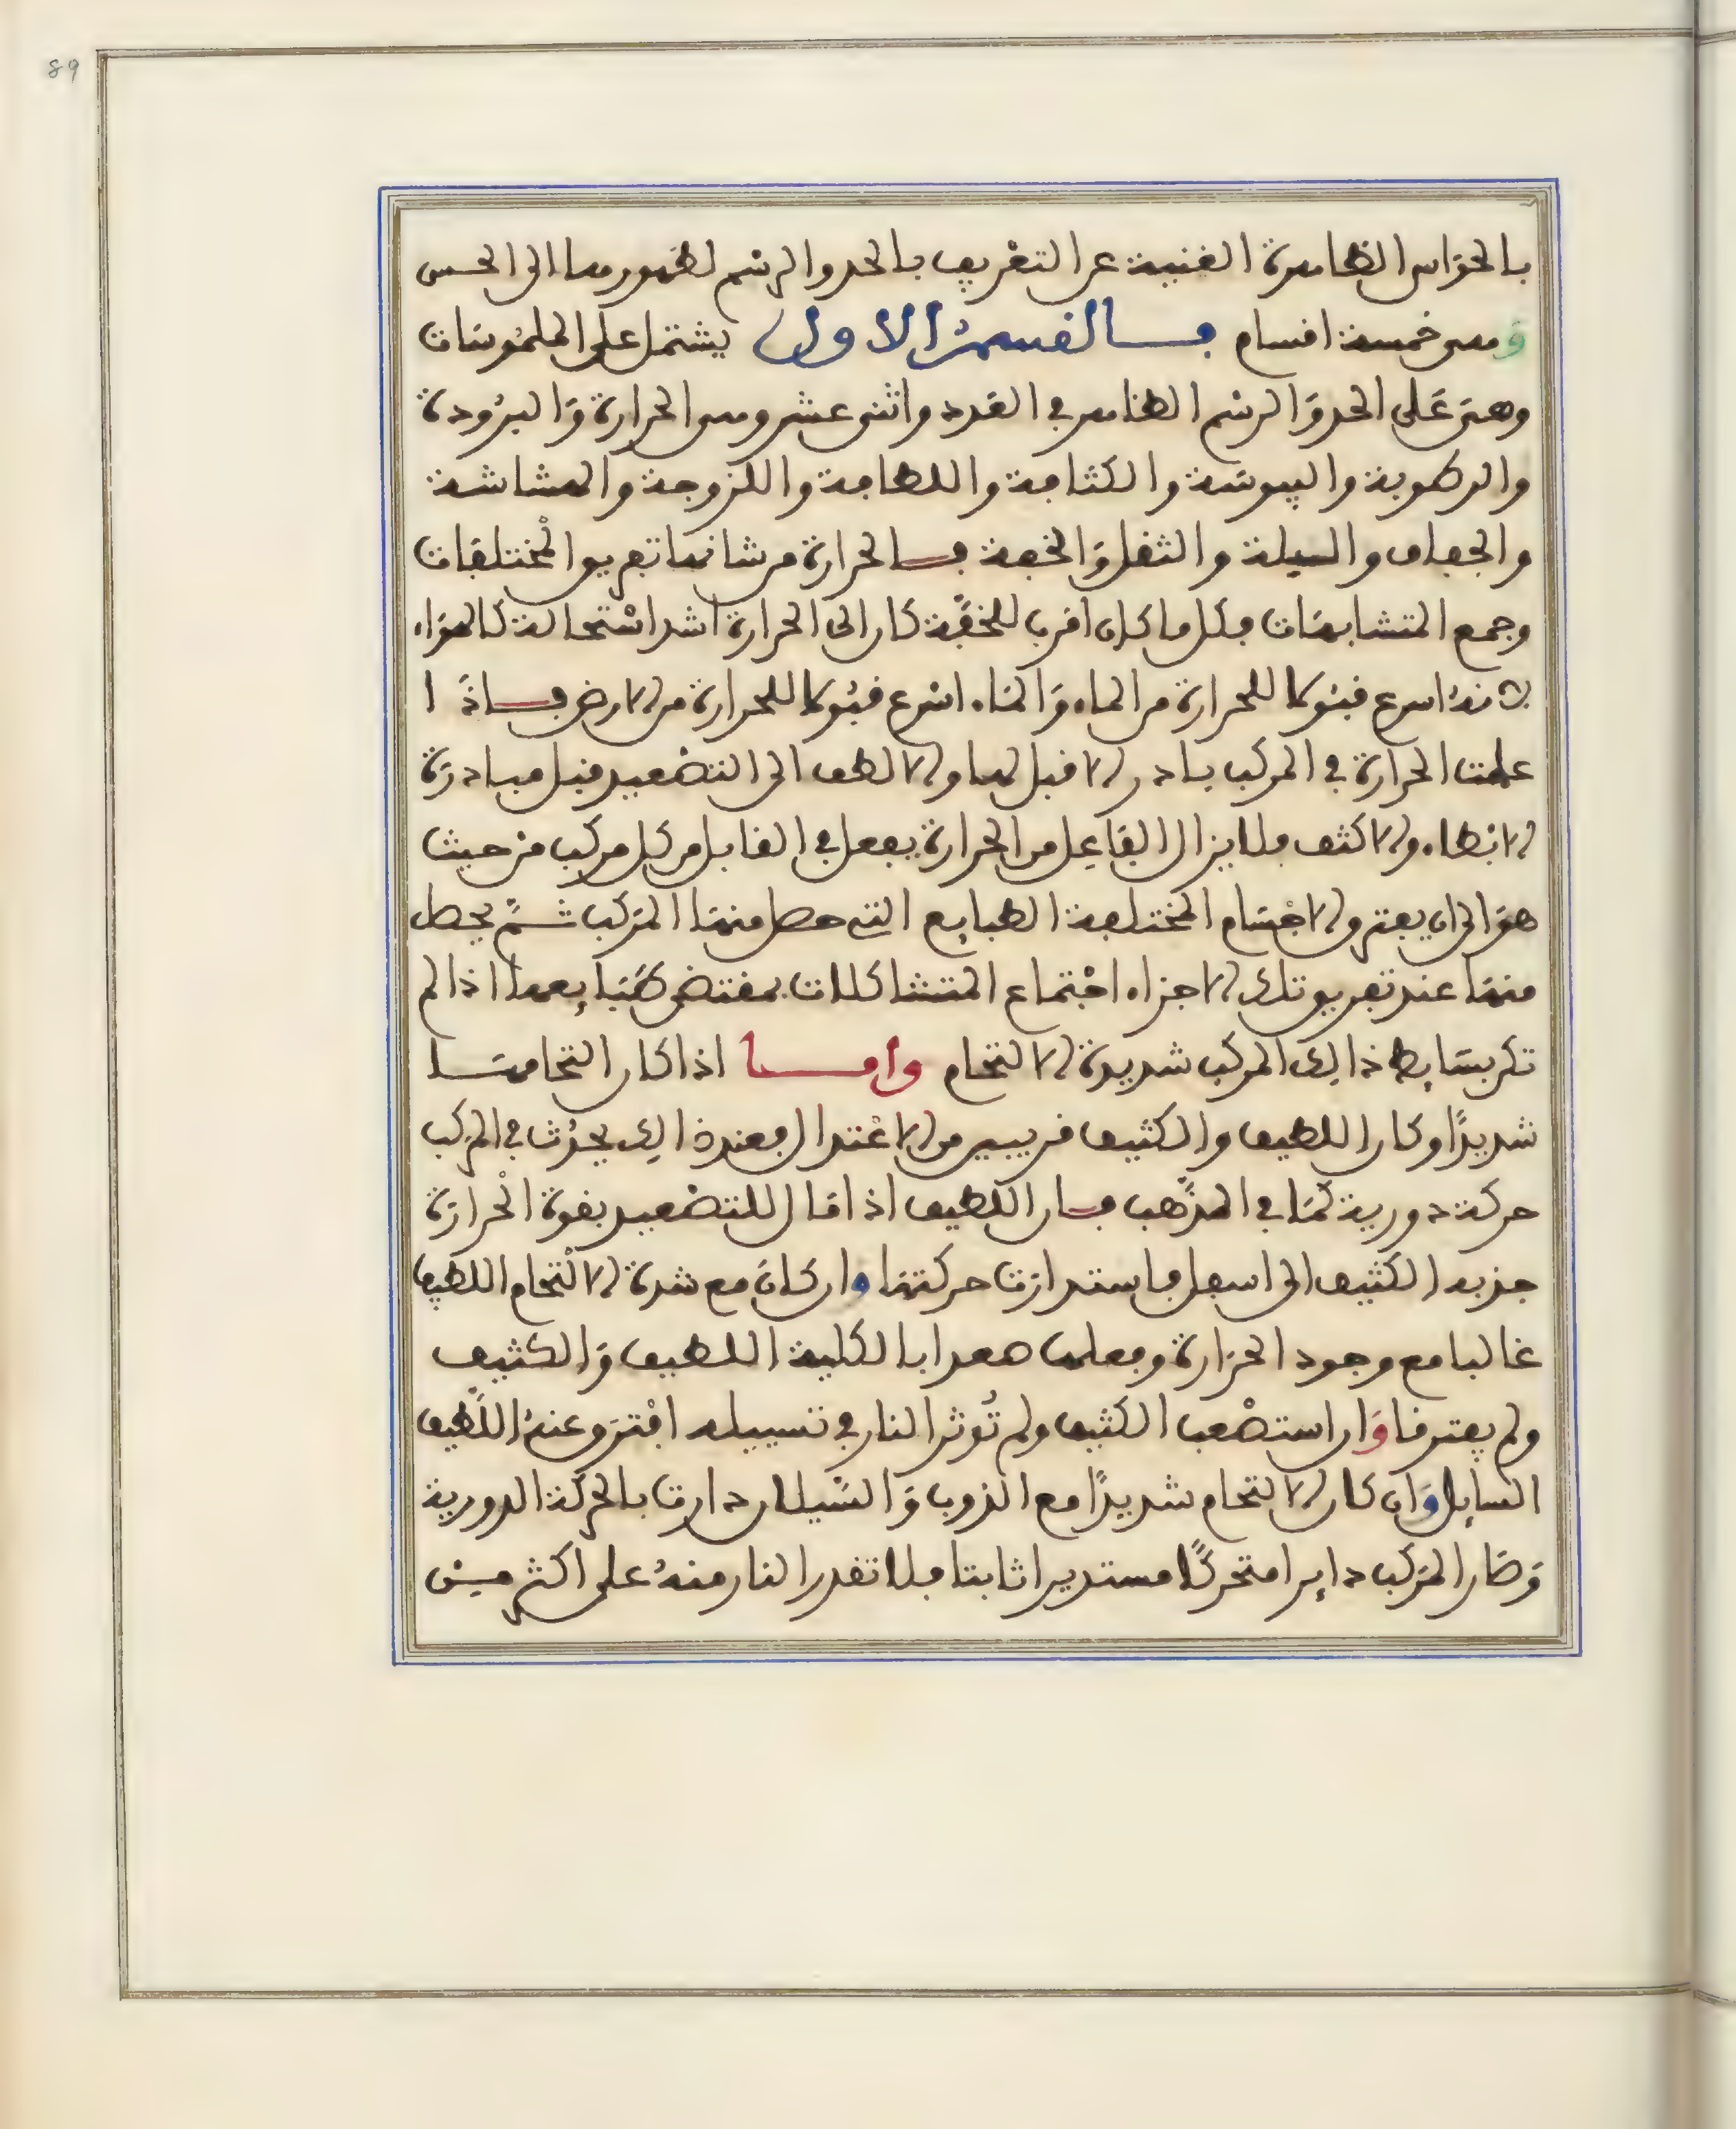 89
بالحواس الظاهرة الغنية عن التعريف بالحد والرسم لظهورها الى الحس
وهي خمسة اقسام فالقسم الاول يشتمل على الملموسات
وهي على الحد والرسم الظاهر في العدد واثنى عشر وهي الحرارة والبرودة
والرطوبة واليبوسة والكثافة واللطافة واللزوجة والهشاشة
والجفاف والبلة والثقل والخفة فالحرارة من شانها تفريق المختلفات
وجمع المتشابهات فكل ما كان اقرب للخفة كان الى الحرارة اشد استحالة كالهواء
لانه اسرع قبولا للحرارة من الماء والماء اسرع قبولا للحرارة من الارض فاذا
علمت الحرارة في المركب بادر الاقبل لها والالطف الى التصعيد قبل مبادرة
الابطاء والاكثف فلا يزال الفاعل من الحرارة يفعل في القابل من كل مركب من حيث
هو الى ان يفترق الاجسام المختلفة الطبايع التي حصل منها المركب ثم يحصل
منها عند تفريق تلك الاجزاء اجتماع المتشاكلات بمقتضى طبايعها اذا لم
تكن بسايط ذالك المركب شديدة الالتحام واما اذا كان التحامها
شديدًا وكان اللطيف والكثيف قريبين من الاعتدال فعند ذالك يحدُث في المركب
حركة دورية كما في المذهب فان اللطيف اذا مال للتصعيد بقوة الحرارة
جذبه الكثيف الى اسفل فاستدارت حركتها وان كان مع شدة الالتحام اللطيف
غالبا مع وجود الحرارة وفعلها صعدا بالكلية اللطيف والكثيف
ولم يفترقا وان استصعب الكثيف ولم تُوثر النار في تسييله افترق عنه اللطيف
السايل وان كان الالتحام شديدًا مع الذوب والسيلان دارت بالحركة الدورية
وصار المركب دايرا متحركًا مستديرا ثابتا فلا تقدر النار منهُ على اكثر من